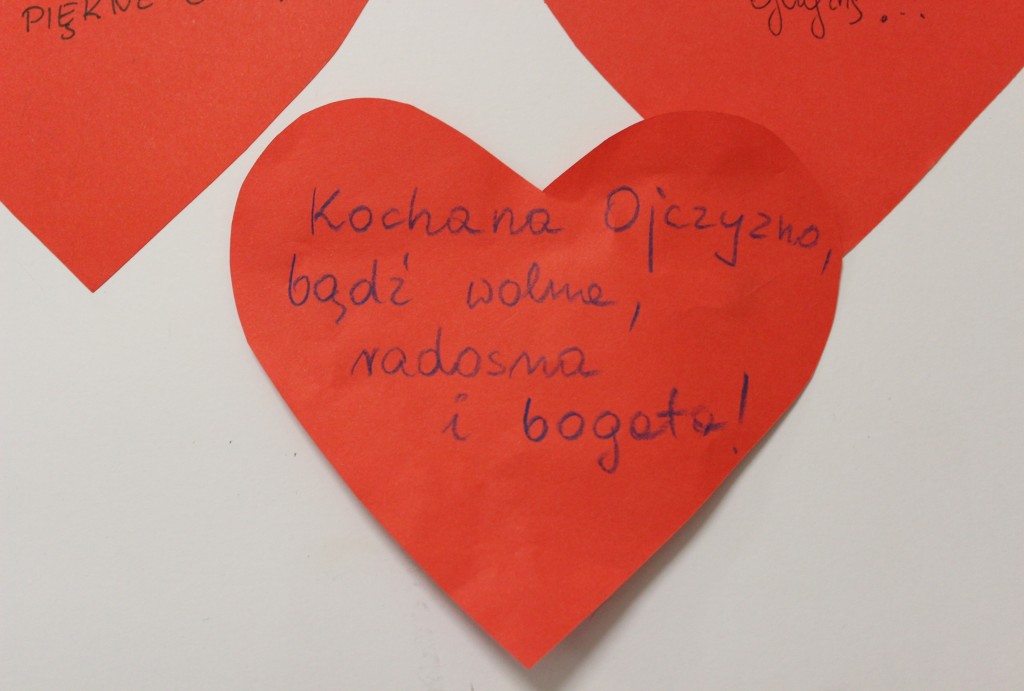 PIĘKNE
Kochana Ojczyzno,
bądź wolna,
radosna
i bogata!